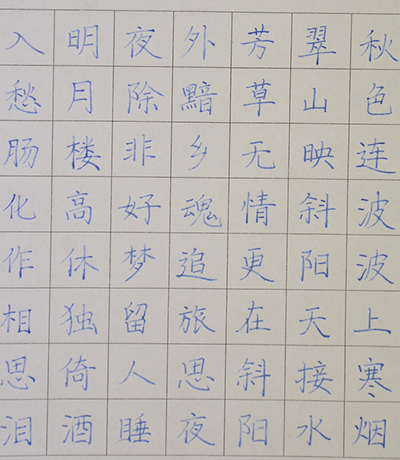 秋色连波波上寒烟
翠山映斜阳天接水
芳草无情更在斜阳
外黯乡魂追旅思夜
夜除非好梦留人睡
明月楼高休独倚酒
入愁肠化作相思泪